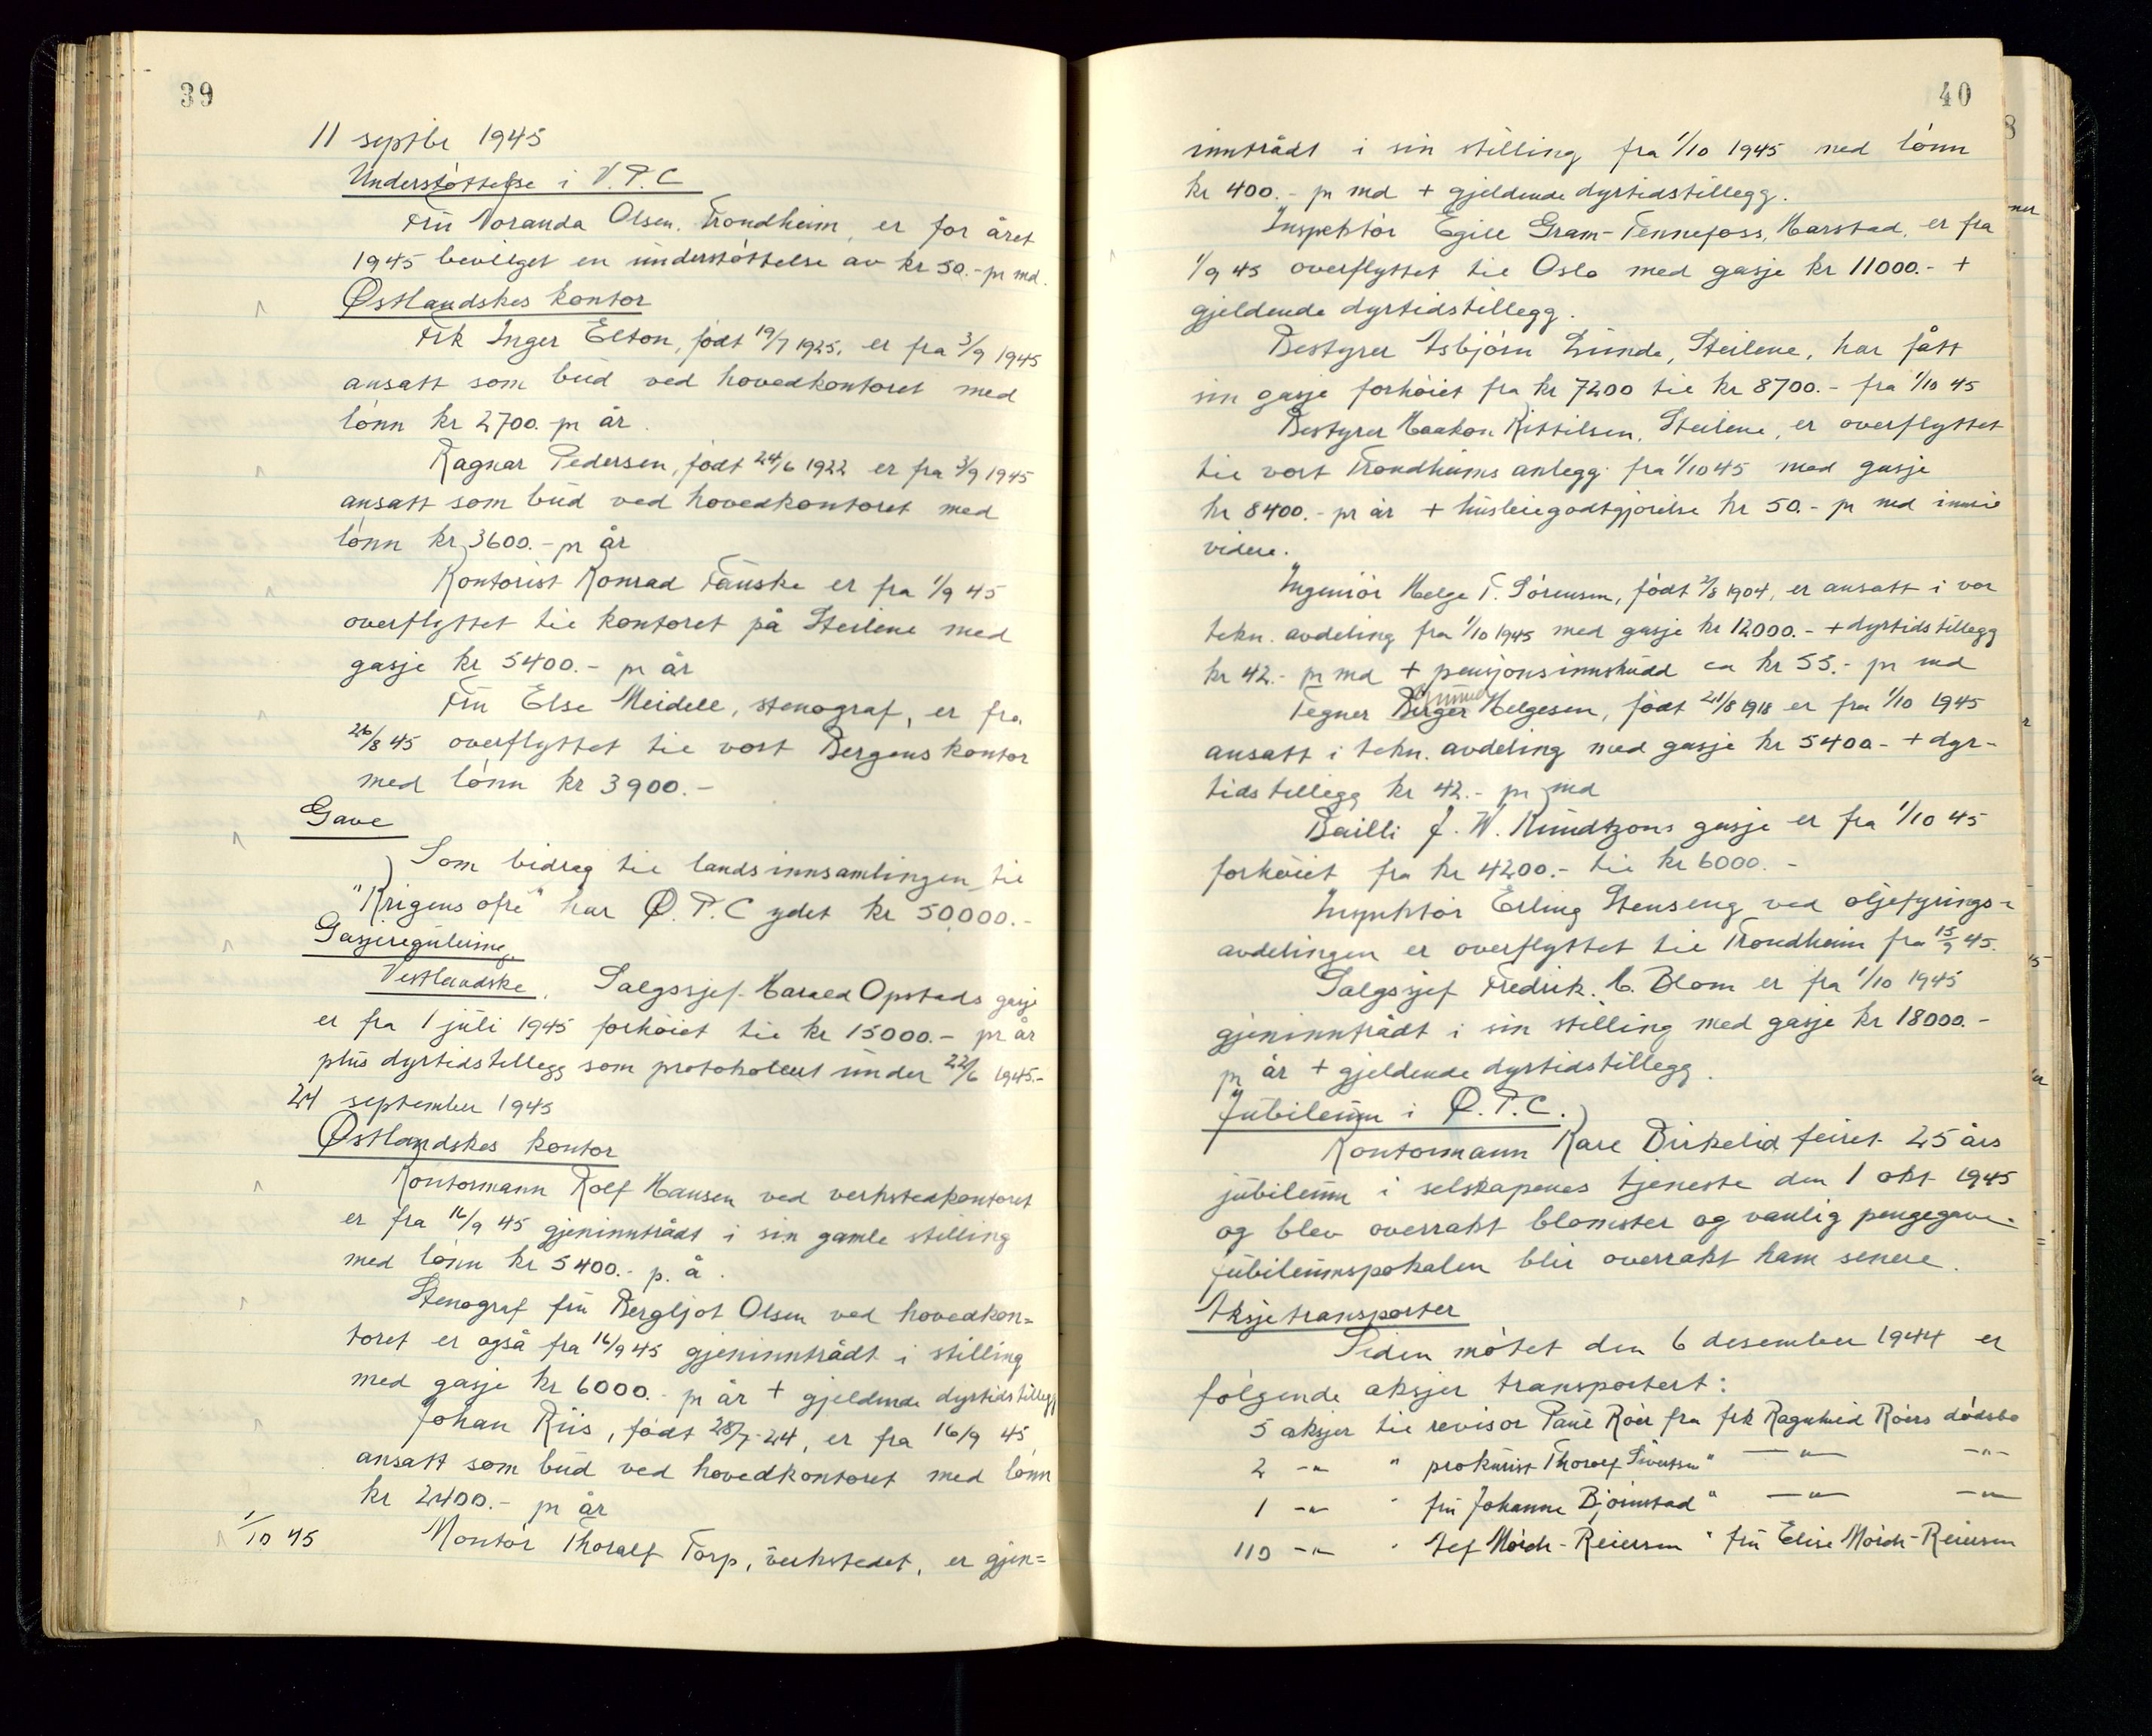 39
11 septbr 1945
Understøttelse i V.P.C
Fru Noranda Olsen, Trondheim, er for året
1945 bevilget en understøttelse av kr 50.- pr md.
Østlandskes kontor
Frk Inger Elton, født 19/7 1925, er fra 3/9 1945
ansatt som bud ved hovedkontoret med
lønn kr 2700. pr år.
Ragnar Pedersen, født 24/6 1922 er fra 3/9 1945
ansatt som bud ved hovedkontoret med
lønn kr 3600.- pr år
Kontorist Konrad Fauske er fra 1/9 45
overflyttet til kontoret på Steilene med
gasje kr 5400.- pr år
Fru Else Meidell, stenograf, er fra
26/8 45 overflyttet til vort Bergens kontor
med lønn kr 3900.-
Gave
Som bidrag til landsinnsamlingen til
"Krigens ofre" har Ø.P.C ydet kr 50,000.-
Gasjeregulering
Vestlandske. Salgssjef Harald Opstads gasje
er fra 1 juli 1945 forhøiet til kr 15000.- pr år
plus dyrtidstillegg som protokollert under 22/6 1945.-
24 september 1945
Østlandskes kontor
Kontormann Rolf Hansen ved verkstedkontoret
er fra 16/9 45 gjeninntrådt i sin gamle stilling
med lønn kr 5400.- p. å.
Stenograf fru Bergljot Olsen ved hovedkon=
toret er også fra 16/9 45 gjeninntrådt i stilling
med gasje kr 6000.- pr år + gjeldende dyrtidstillegg
Johan Riis, født 28/7-24, er fra 16/9 45
ansatt som bud ved hovedkontoret med lønn
kr 2400.- pr år
1/10 45 Montør Thoralf Torp, verkstedet, er gjen=
40
inntrådt i sin stilling fra 1/10 1945 med lønn
kr 400.- pr md + gjeldende dyrtidstillegg.
Inspektør Egill Gram-Tennefoss, Harstad, er fra
1/9 45 overflyttet til Oslo med gasje kr 11000.- +
gjeldende dyrtidstillegg.
Bestyrer Asbjørn Lunde, Steilene, har fått
sin gasje forhøiet fra kr 7200 til kr 8700.- fra 1/10 45
Bestyrer Haakon Kittilsen, Steilene, er overflyttet
til vort Trondheims anlegg fra 1/10 45 med gasje
kr 8400.- pr år + husleiegodtgjørelse kr 50.- pr md inntil
videre.
Ingeniør Helge F. Sørensen, født 2/8 1904, er ansatt i vor
tekn. avdeling fra 1/10 1945 med gasje kr 12000.- + dyrtidstillegg
kr 42.- pr md + pensjonsinnskudd ca kr 55.- pr md
Tegner Birger Helgesen, født 21/8 1918 er fra 1/10 1945
ansatt i tekn. avdeling med gasje kr 5400.- + dyr-
tidstillegg kr 42.- pr md
Bailli J. W. Knudtzons gasje er fra 1/10 45
forhøiet fra kr 4200.- til kr 6000.-
Inspektør Erling Stenseng ved oljefyrings=
avdelingen er overflyttet til Trondheim fra 15/9 45.
Salgssjef Fredrik. C. Blom er fra 1/10 1945
gjeninntrådt i sin stilling med gasje kr 18000.-
pr år + gjeldende dyrtidstillegg.
Jubileum i Ø.P.C.
Kontormann Kåre Birkelid feiret 25 års
jubileum i selskapenes tjeneste den 1 okt 1945
og blev overrakt blomster og vanlig pengegave.
Jubileumspokalen blir overrakt ham senere.
Aksjetransporter
Siden møtet den 6 desember 1944 er
følgende aksjer transportert:
5 aksjer til revisor Paul Röer fra frk Ragnhild Röers dødsbo
2 -"- " prokurist Thorolf Sivertsen " -"- -"-
1 -"- " fru Johanne Bjørnstad " -"- -"-
110 -"- " Alf Mørch-Reiersen " fru Elise Mørch-Reiersen